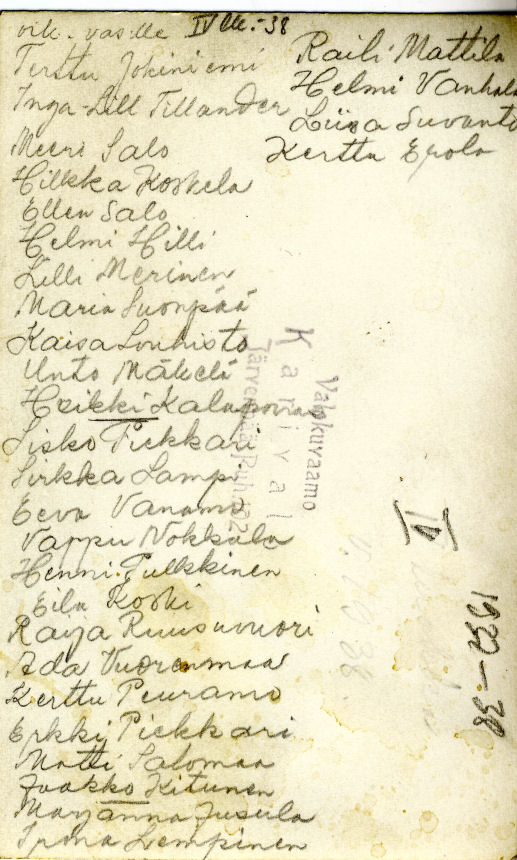 oik. vas:lle IV lk. -38
Terttu Jokiniemi
Inga-Lill Tillander
Meeri Salo
Hilkka Koskela
Ellen Salo
Helmi Hilli
Lilli Merinen
Maria Suonpää
Kaisa Louhisto
Unto Mäkelä
Heikki Kalapovias
Sisko Piekkari
Sirkka Lampi
Eeva Vanamo
Vappu Nokkala
Henni Pulkkinen
Eila Koski
Raija Ruusuvuori
Ada Vuorenmaa
Kerttu Peuramo
Erkki Piekkari
Matti Salomaa
Jaakko Kitunen
Marjanna Jusula
Irma Lempinen
Raili Mattila
Helmi Vanhala
Liisa Suvanto
Kerttu Erola
Valokuvaamo
Karival
Järvenpää Puh. 22
IV
1937-38